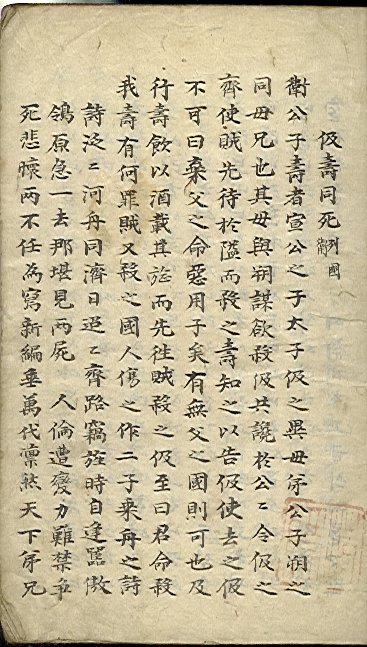 伋壽同死 列國 衛
衛公子壽者宣公之子太子伋之異母弟公子朔之
同母兄也其母與朔謀欲殺伋共讒於公〻令伋之
齊使賊先待於隘而殺之壽知之以告伋使去之伋
不可曰棄父之命惡用子矣有無父之國則可也及
行壽飲以酒載其旌而先往賊殺之伋至曰君命殺
我壽有何罪賊又殺之國人傷之作二子乘舟之詩
詩泛〻河舟同濟日迢〻齊路竊旌時自逢嚚傲
鴒原急一去那堪見兩屍 人倫遭變力難禁爭
死悲懷兩不任為寫新編垂萬代凛然天下弟兄